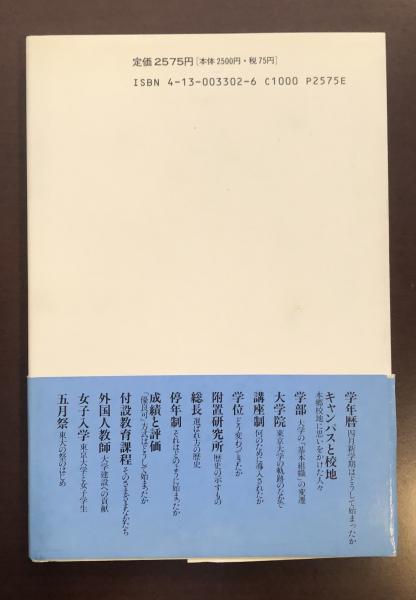 定価2575円[本体2500円・税75円]
ISBN 4-13-003302-6 C1000 P2575E
学年暦 四月新学期はどうして始まったか
キャンパスと校地 本郷校地に思いをかけた人々
学部 大学の「基本組織」の変遷
大学院 東京大学の軌跡のなかで
講座制 何のために導入されたか
学位 どう変わってきたか
附置研究所 歴史の示すもの
総長 選ばれ方の歴史
停年制 それはどのように始まったか
成績と評価 「優良可」方式はどうして始まったか
付設教育課程 そのさまざまなかたち
外国人教師 大学建設への貢献
女子入学 東京大学と女子学生
五月祭 東大の祭のはじめ